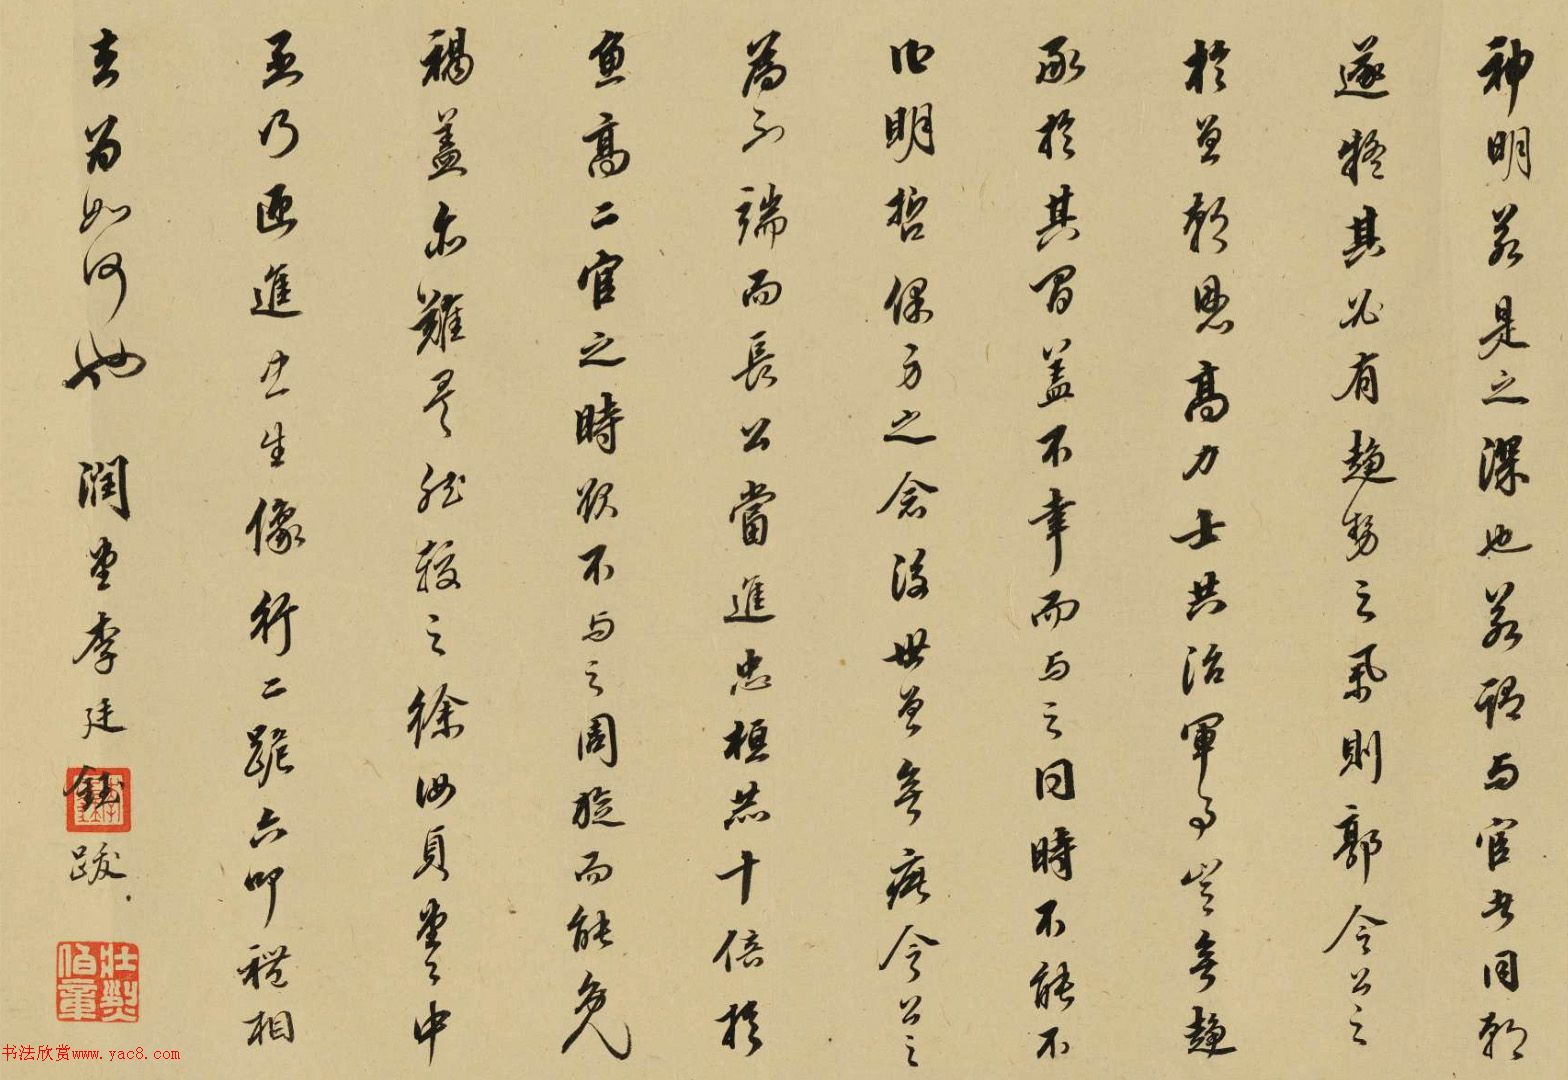 神明若是之深也若謂与宦者同朝
遂疑其必有趨勢之氣則郭令公之
於魚朝恩高力士共治軍事豈無趨
承於其間蓋不幸而与之同時不能不
以明哲保身之念後世曾無疵令公之
為不端而長公當進忠十倍於
魚高二宦之時欲不与之周旋而能免
禍蓋亦難矣然較之徐汝貞堂堂中
丞乃進忠生像行二跪六叩禮相
去为如何也 潤堂李廷鈺跋
壯烈伯章
书法欣赏www.yac8.com